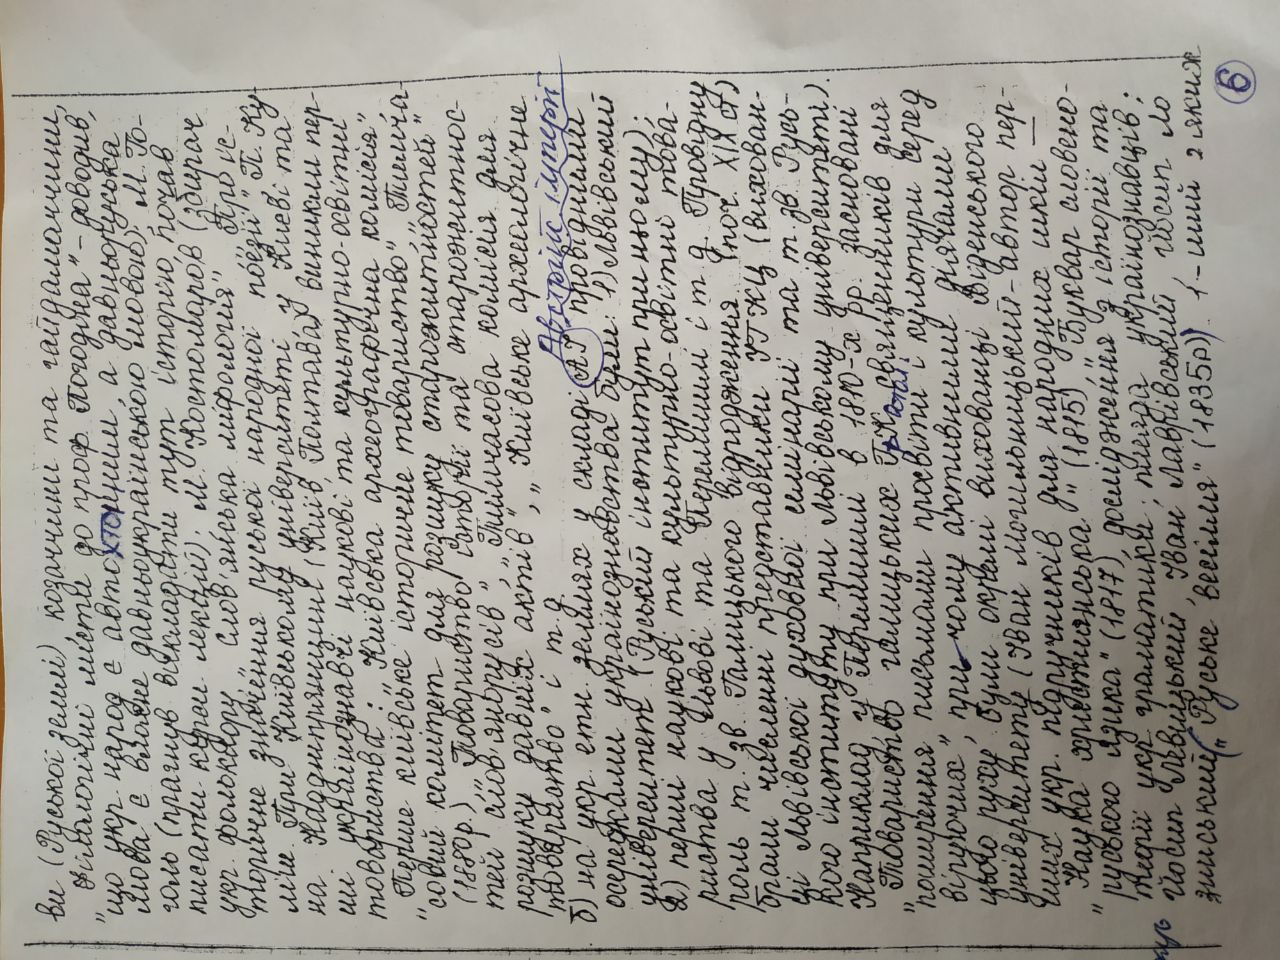 ви (Руської землі), козаччини та гайдамаччини,
„Філологічні листи до проф. Погодіна" – доводив,
що укр. народ є автохтонним, а давньоруська
мова є власне давньоукраїнською мовою); М. Го-
голь (прагнув викладати тут історію, почав
писати курси лекцій); М. Костомаров (збирач
укр. фольклору „Слов'янська міфологія", „Про іс-
торичне значення руської народної поезії", П. Ку-
ліш. При Київському університеті, у Києві та
на Наддніпрянщині (Київ, Полтава) виникли пер-
ші українознавчі наукові та культурно-освітні
товариства: „Київська археографічна комісія",
„Перше київське історичне товариство", „Тимча-
совий комітет для розшуку старожитностей"
(1880р.), „Товариство історії та старожитнос-
тей слов'янорусів", „Тимчасова комісія для
розшуку давніх актів", „Київське археологічне
товариство" і т.д.
Австрійс імперії
б) на укр. етн. землях у складі АІ провідними
осередками українознавства були: 1) Львівський
університет (Руський інститут при ньому);
2) перші наукові та культурно-освітні това-
риства у Львові та Перемишлі і т.д. Провідну
роль т. зв. Галицького відродження (поч. XIX ст)
брали численні представники УГКЦ (вихован-
ці Львівської духовної семінарії та т. зв. Русь-
кого інституту при Львівському університеті).
Наприклад, у Перемишлі в 1810-х рр. засновані
„Товариство галицьких ГК священників для
поширення письмами просвіти і культури серед
віруючих", при чому активними діячами
цього руху були окремі вихованці Віденського
університету (Іван Могильницький – автор пер-
ших укр. підручників для народних шкіл —
„Наука християнська" (1815), „Буквар словено-
руського язика" (1817), дослідження з історії та
теорії укр. граматики; плеяда українознавців:
Йосип Левицький, Іван Лаврівський, Йосип Ло
зинський („Руське весілля" (1835р)). 1-ший з яких
6